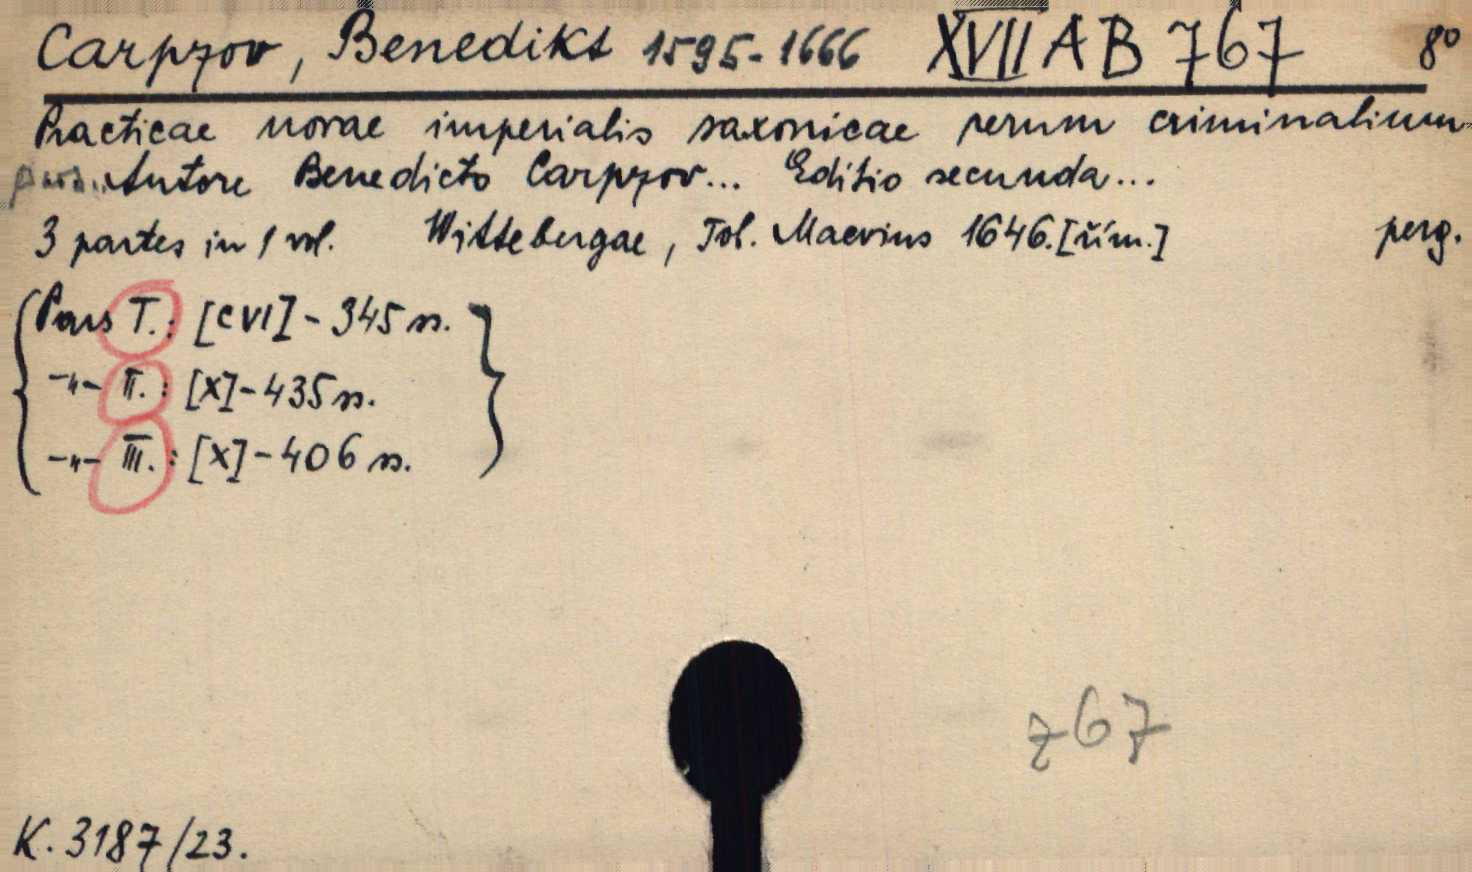 Carpzov, Benedikt 1595-1666 XVII A B 767 8°
Practicae novae imperialis saxonicae rerum criminalium
pars.. Autore Benedicto Carpzov... Editio secunda...
3 partes in 1 vol. Wittebergae, Tob. Maevius 1646.[řím.] perg.
Pars I.: [CVI] - 345 ss.
-"- II.: [X] - 435 ss.
-"- III.: [X] - 406 ss.
767
K. 3187/23.